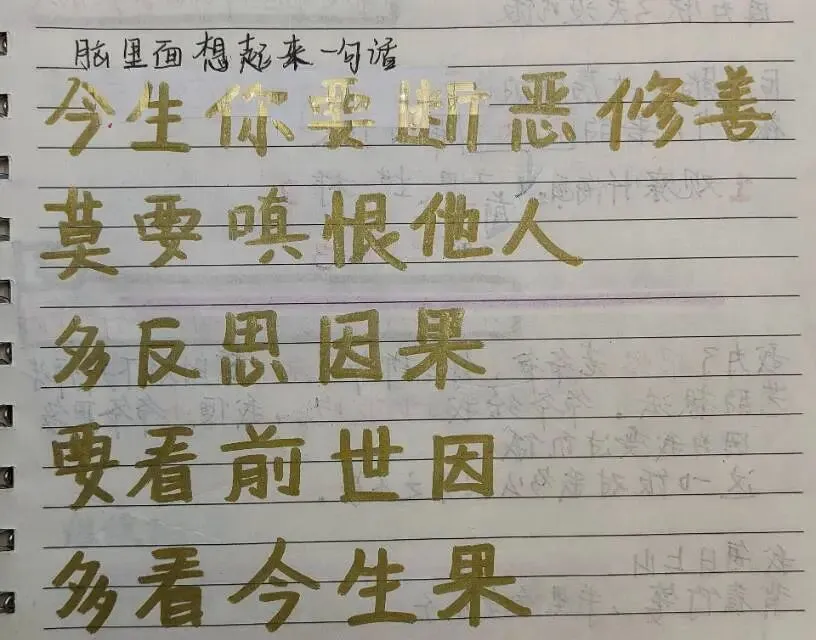 脑里面想起来一句话
今生你要断恶修善
莫要嗔恨他人
多反思因果
要看前世因
多看今生果